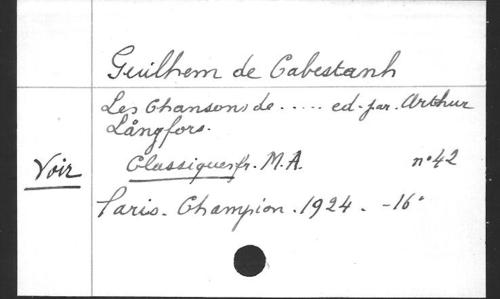 Guilhem de Cabestanh
Les Chansons de ..... ed. par. Arthur
Långfors.
Voir Classiques fr. M.A. n° 42
Paris. Champion. 1924. - 16°